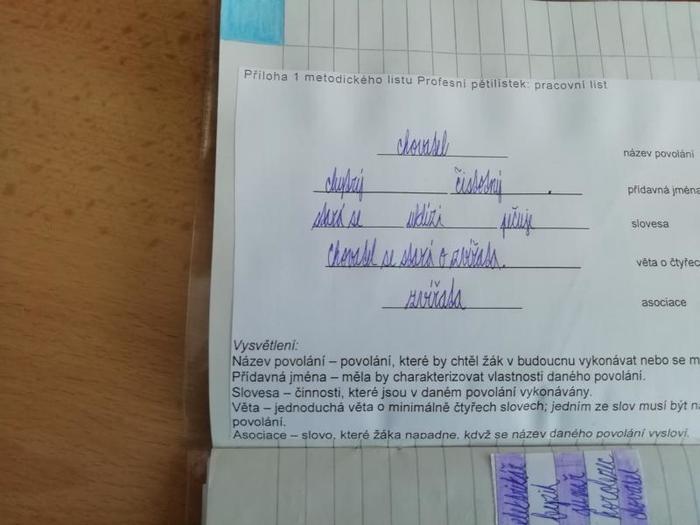 Příloha 1 metodického listu Profesní pětilístek: pracovní list
chovatel
název povolání
chytrý čistotný .
přídavná jména
stará se uklízí pečuje
slovesa
chovatel se stará o zvířata.
věta o čtyřec
zvířata
asociace
Vysvětlení:
Název povolání – povolání, které by chtěl žák v budoucnu vykonávat nebo se m
Přídavná jména – měla by charakterizovat vlastnosti daného povolání.
Slovesa – činnosti, které jsou v daném povolání vykonávány.
Věta – jednoduchá věta o minimálně čtyřech slovech; jedním ze slov musí být ná
povolání.
Asociace – slovo, které žáka napadne, když se název daného povolání vysloví.
chovatel